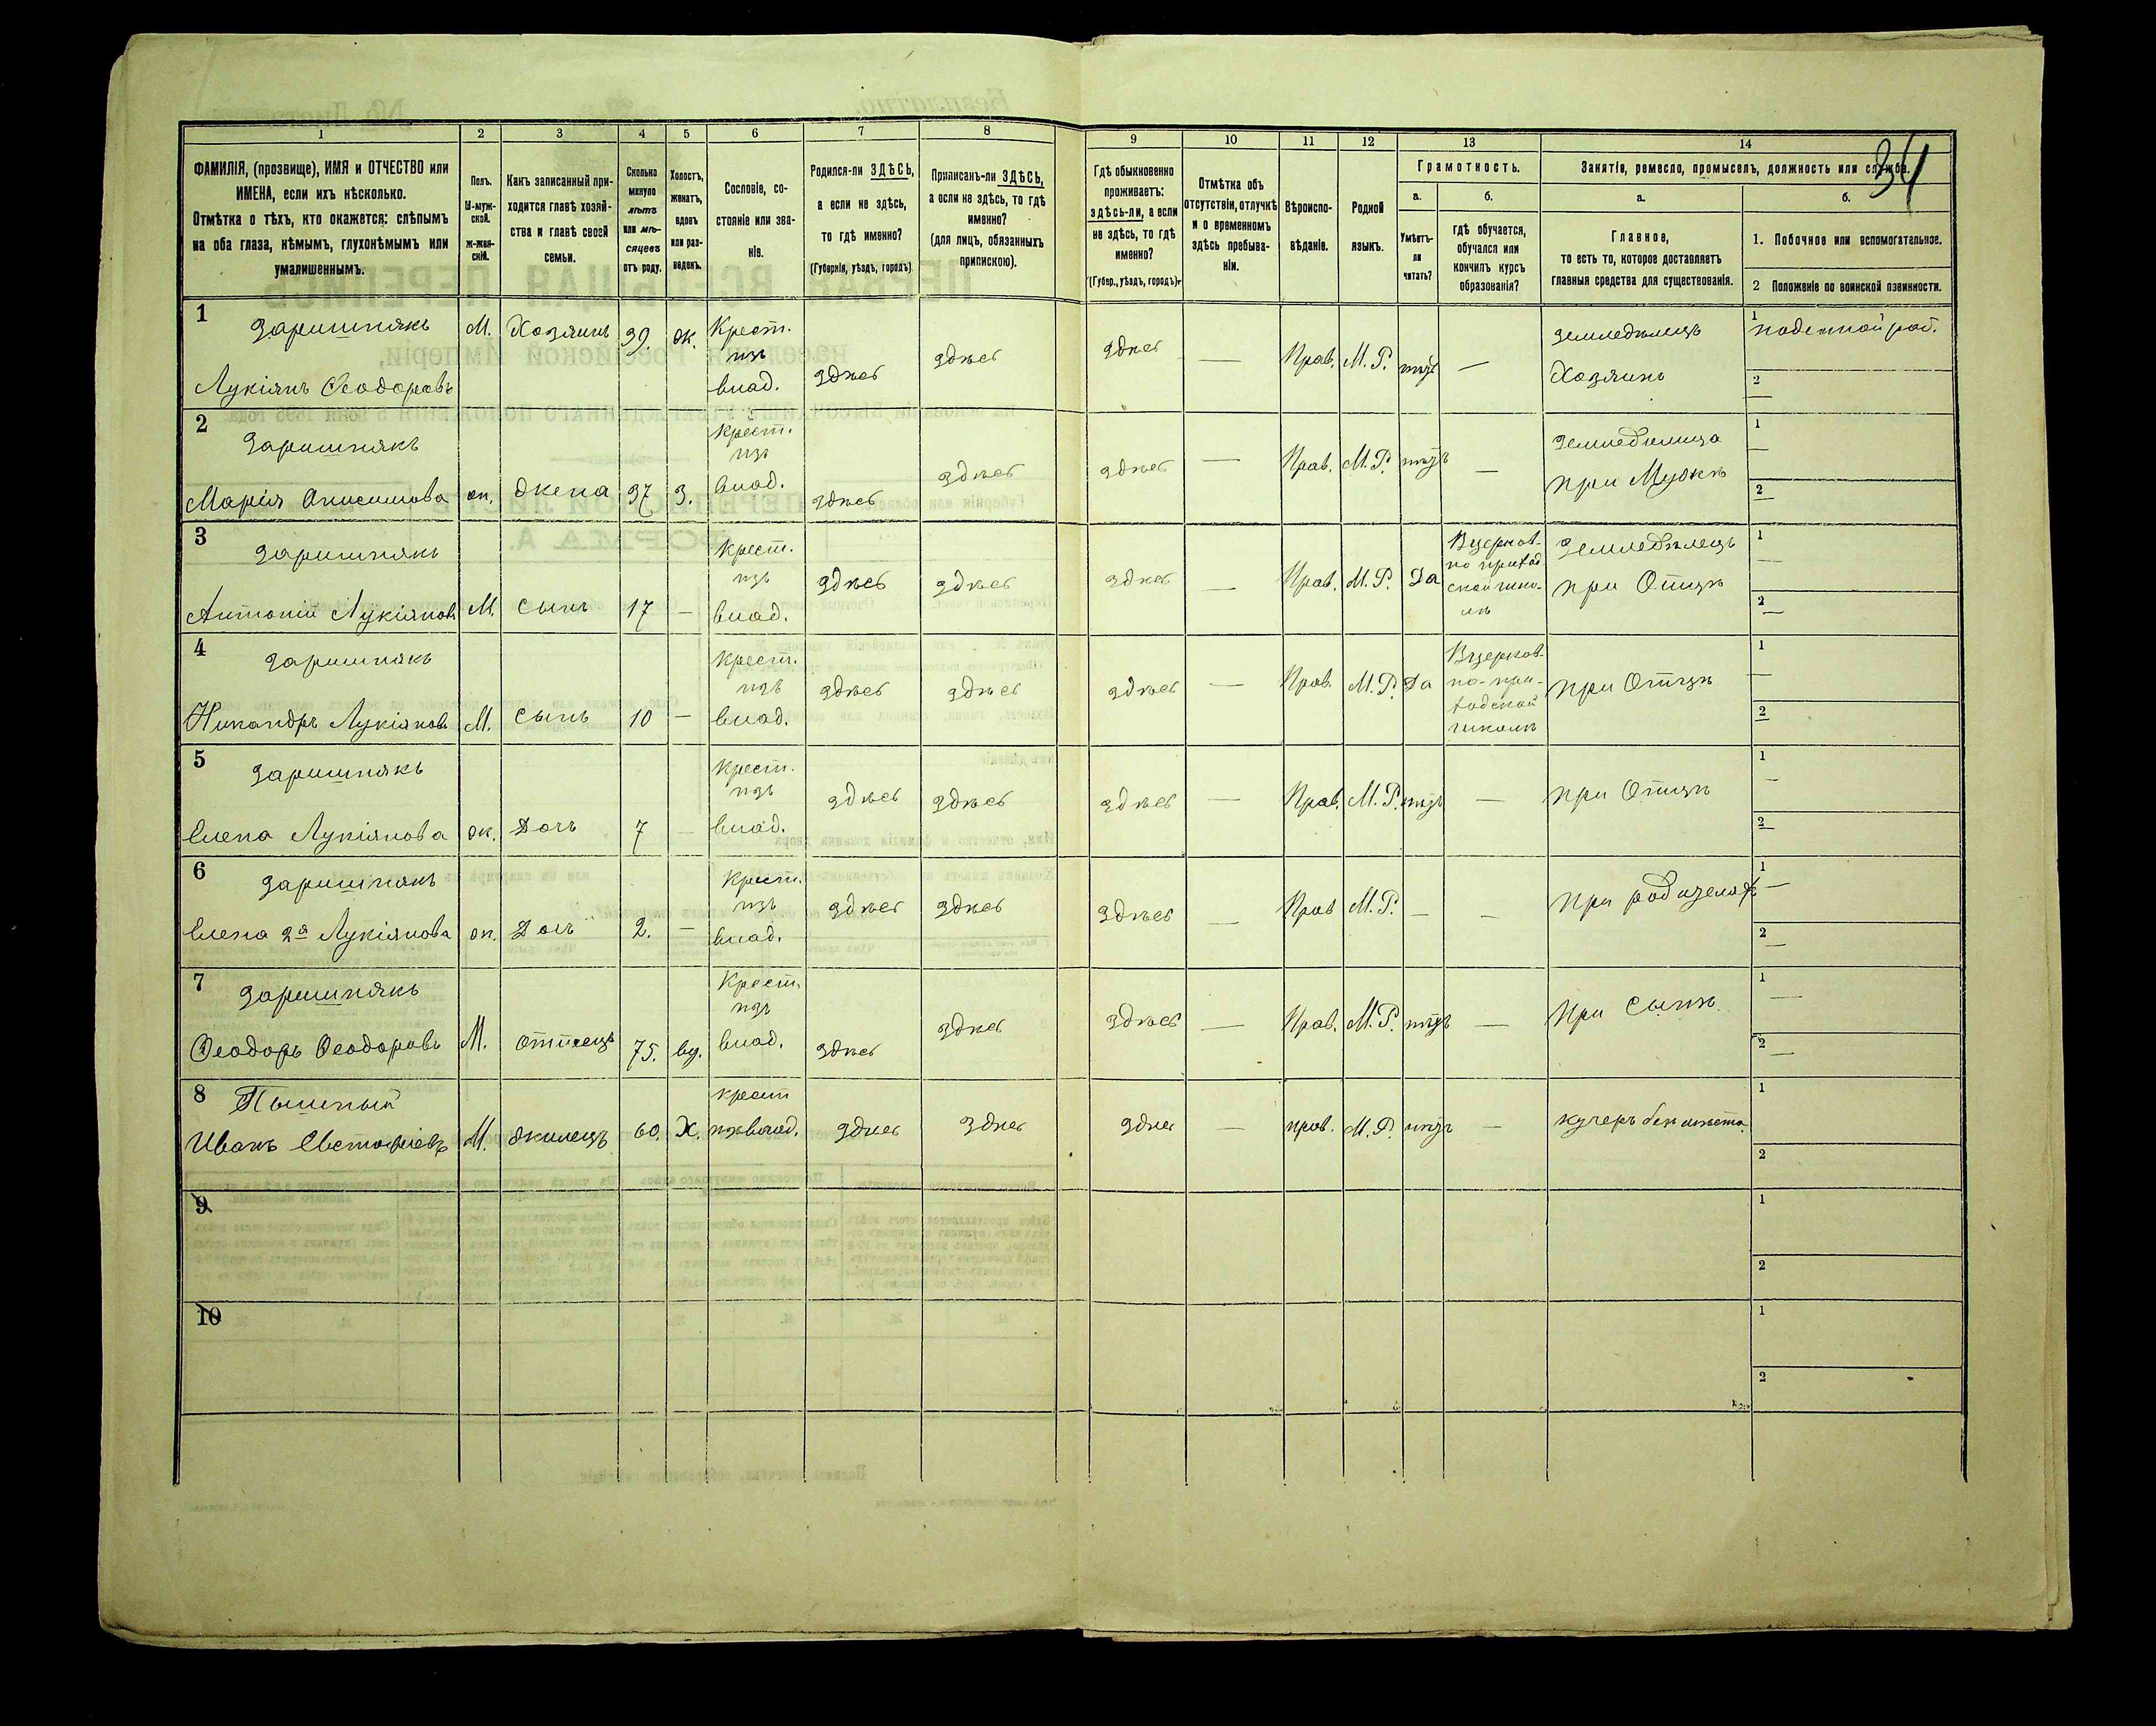 34
1 2 3 4 5 6 7 8 9 10 11 12 13 14
ФАМИЛІЯ, (прозвище), ИМЯ и ОТЧЕСТВО или
ИМЕНА, если ихъ нѣсколько.
Отмѣтка о тѣхъ, кто окажется: слѣпымъ
на оба глаза, нѣмымъ, глухонѣмымъ или
умалишеннымъ.
Полъ.
М-муж-
ской.
ж-жен-
скій.
Какъ записанный при-
ходится главѣ хозяй-
ства и главѣ своей
семьи.
Сколько
минуло
лѣтъ
или мѣ-
сяцевъ
отъ роду.
Холостъ,
женатъ,
вдовъ
или раз-
веденъ.
Сословіе, со-
стояніе или зва-
ніе.
Родился-ли ЗДѢСЬ,
а если не здѣсь,
то гдѣ именно?
(Губернія, уѣздъ, городъ)
Приписанъ-ли ЗДѢСЬ,
а если не здѣсь, то гдѣ
именно?
(для лицъ, обязанныхъ
припискою).
Гдѣ обыкновенно
проживаетъ:
здѣсь-ли, а если
не здѣсь, то гдѣ
именно?
(Губер., уѣздъ, городъ).
Отмѣтка объ
отсутствіи, отлучкѣ
и о временномъ
здѣсь пребыва-
ніи.
Вѣроиспо-
вѣданіе.
Родной
языкъ.
Грамотность.
а.
Умѣетъ-
ли
читать?
б.
гдѣ обучается,
обучался или
кончилъ курсъ
образованія?
Занятіе, ремесло, промыселъ, должность или служба.
а.
Главное,
то есть то, которое доставляетъ
главныя средства для существованія.
б.
1. Побочное или вспомогательное.
2 Положеніе по воинской повинности.
1 Заришнякъ М. Хозяинъ 39. ж. Крест.
изъ
Лукіянъ Ѳеодоровъ влад. здѣсь здѣсь здѣсь — Прав. М.Р. нѣтъ — Земледѣлецъ
Хозяинъ 1 поденной раб.
2 —
2 Заришнякъ Крест.
изъ
Марія Анисимова ж. жена 37 З. влад. здѣсь здѣсь здѣсь — Прав. М.Р. нѣтъ — Земледѣлица
при Мужѣ 1 —
2 —
3 Заришнякъ Крест.
изъ
Антоній Лукіяновъ М. Сынъ 17 — влад. здѣсь здѣсь здѣсь — Прав. М.Р. Да Вцерков-
но приход
ской шко-
лѣ Земледѣлецъ
при Отцѣ 1 —
2 —
4 Заришнякъ Крест.
изъ
Никандръ Лукіяновъ М. Сынъ 10 — влад. здѣсь здѣсь здѣсь — Прав. М.Р. Да Вцерков-
но-при-
ходской
школѣ при Отцѣ 1 —
2 —
5 Заришнякъ Крест.
изъ
Елена Лукіянова ж. Дочь 7 — влад. здѣсь здѣсь здѣсь — Прав. М.Р. нѣтъ — при Отцѣ 1 —
2 —
6 Заришнякъ Крест.
изъ
Елена 2я Лукіянова ж. Дочь 2. — влад. здѣсь здѣсь здѣсь — Прав М.Р. — — При родителяхъ 1 —
2 —
7 Заришнякъ Крест.
изъ
Ѳеодоръ Ѳеодоровъ М. отецъ 75. вд. влад. здѣсь здѣсь здѣсь — Прав. М.Р. нѣтъ — При Сынѣ 1 —
2 —
8 Пышный крест
Иванъ М. жилецъ 60. Х. изъ влад. здѣсь здѣсь здѣсь — прав. М.Р. нѣтъ — кучеръ без мѣста. 1
2
9 1
2
10 1
2